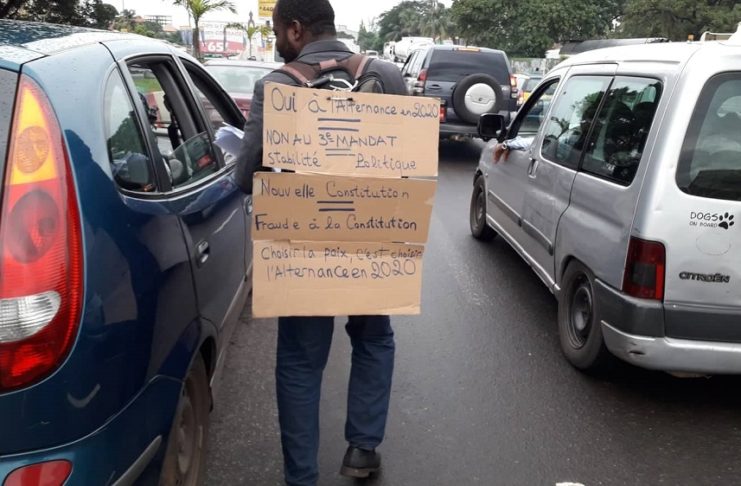 Oui à l'Alternance en 2020
NON AU 3E MANDAT
stabilité Politique
Nouvelle Constitution
Fraude à la Constitution
Choisir la paix, c'est choisir
l'Alternance en 2020
DOGS
ON BOARD
CITROËN